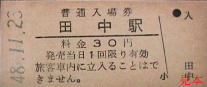 48.11.23
普通入場券
田中駅
料金30円
発売当日1回限り有効
旅客車内に立入ることはで
きません。
●入
小
田中
見本